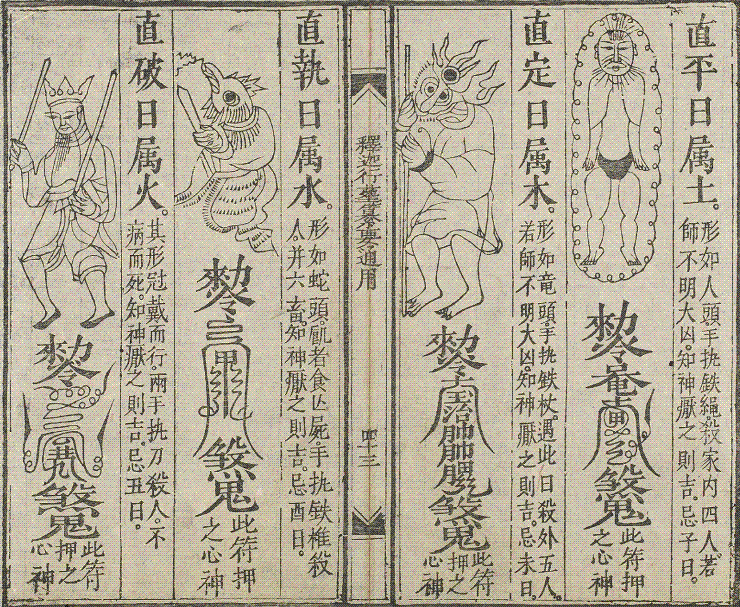 直平日属土。
形如人頭。手执鉄繩。殺家内四人。若
師不明大凶。知神厭之則吉。忌子日。
勅令
煞鬼
此符押
之心神
直定日属木。
形如竜頭。手执鉄杖。遇此日殺外五人。
若師不明大凶。知神厭之則吉。忌未日。
勅令
治
煞鬼
此符
押之
心神
釋迦行
要通用
四十三
直執日属水。
形如蛇頭。飢者食亾屍。手执鉄椎。殺
人。并六畜。知神厭之則吉。忌酉日。
勅令
煞鬼
此符押
之心神
直破日属火。
其形冠戴而行。兩手执刀殺人。不
病而死。知神厭之則吉。忌丑日。
勅令
煞鬼
此符
押之
心神